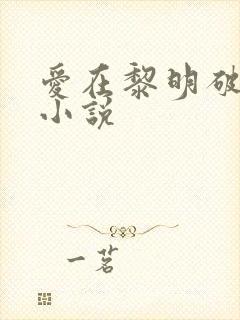 愛在黎明破
小說
一茗